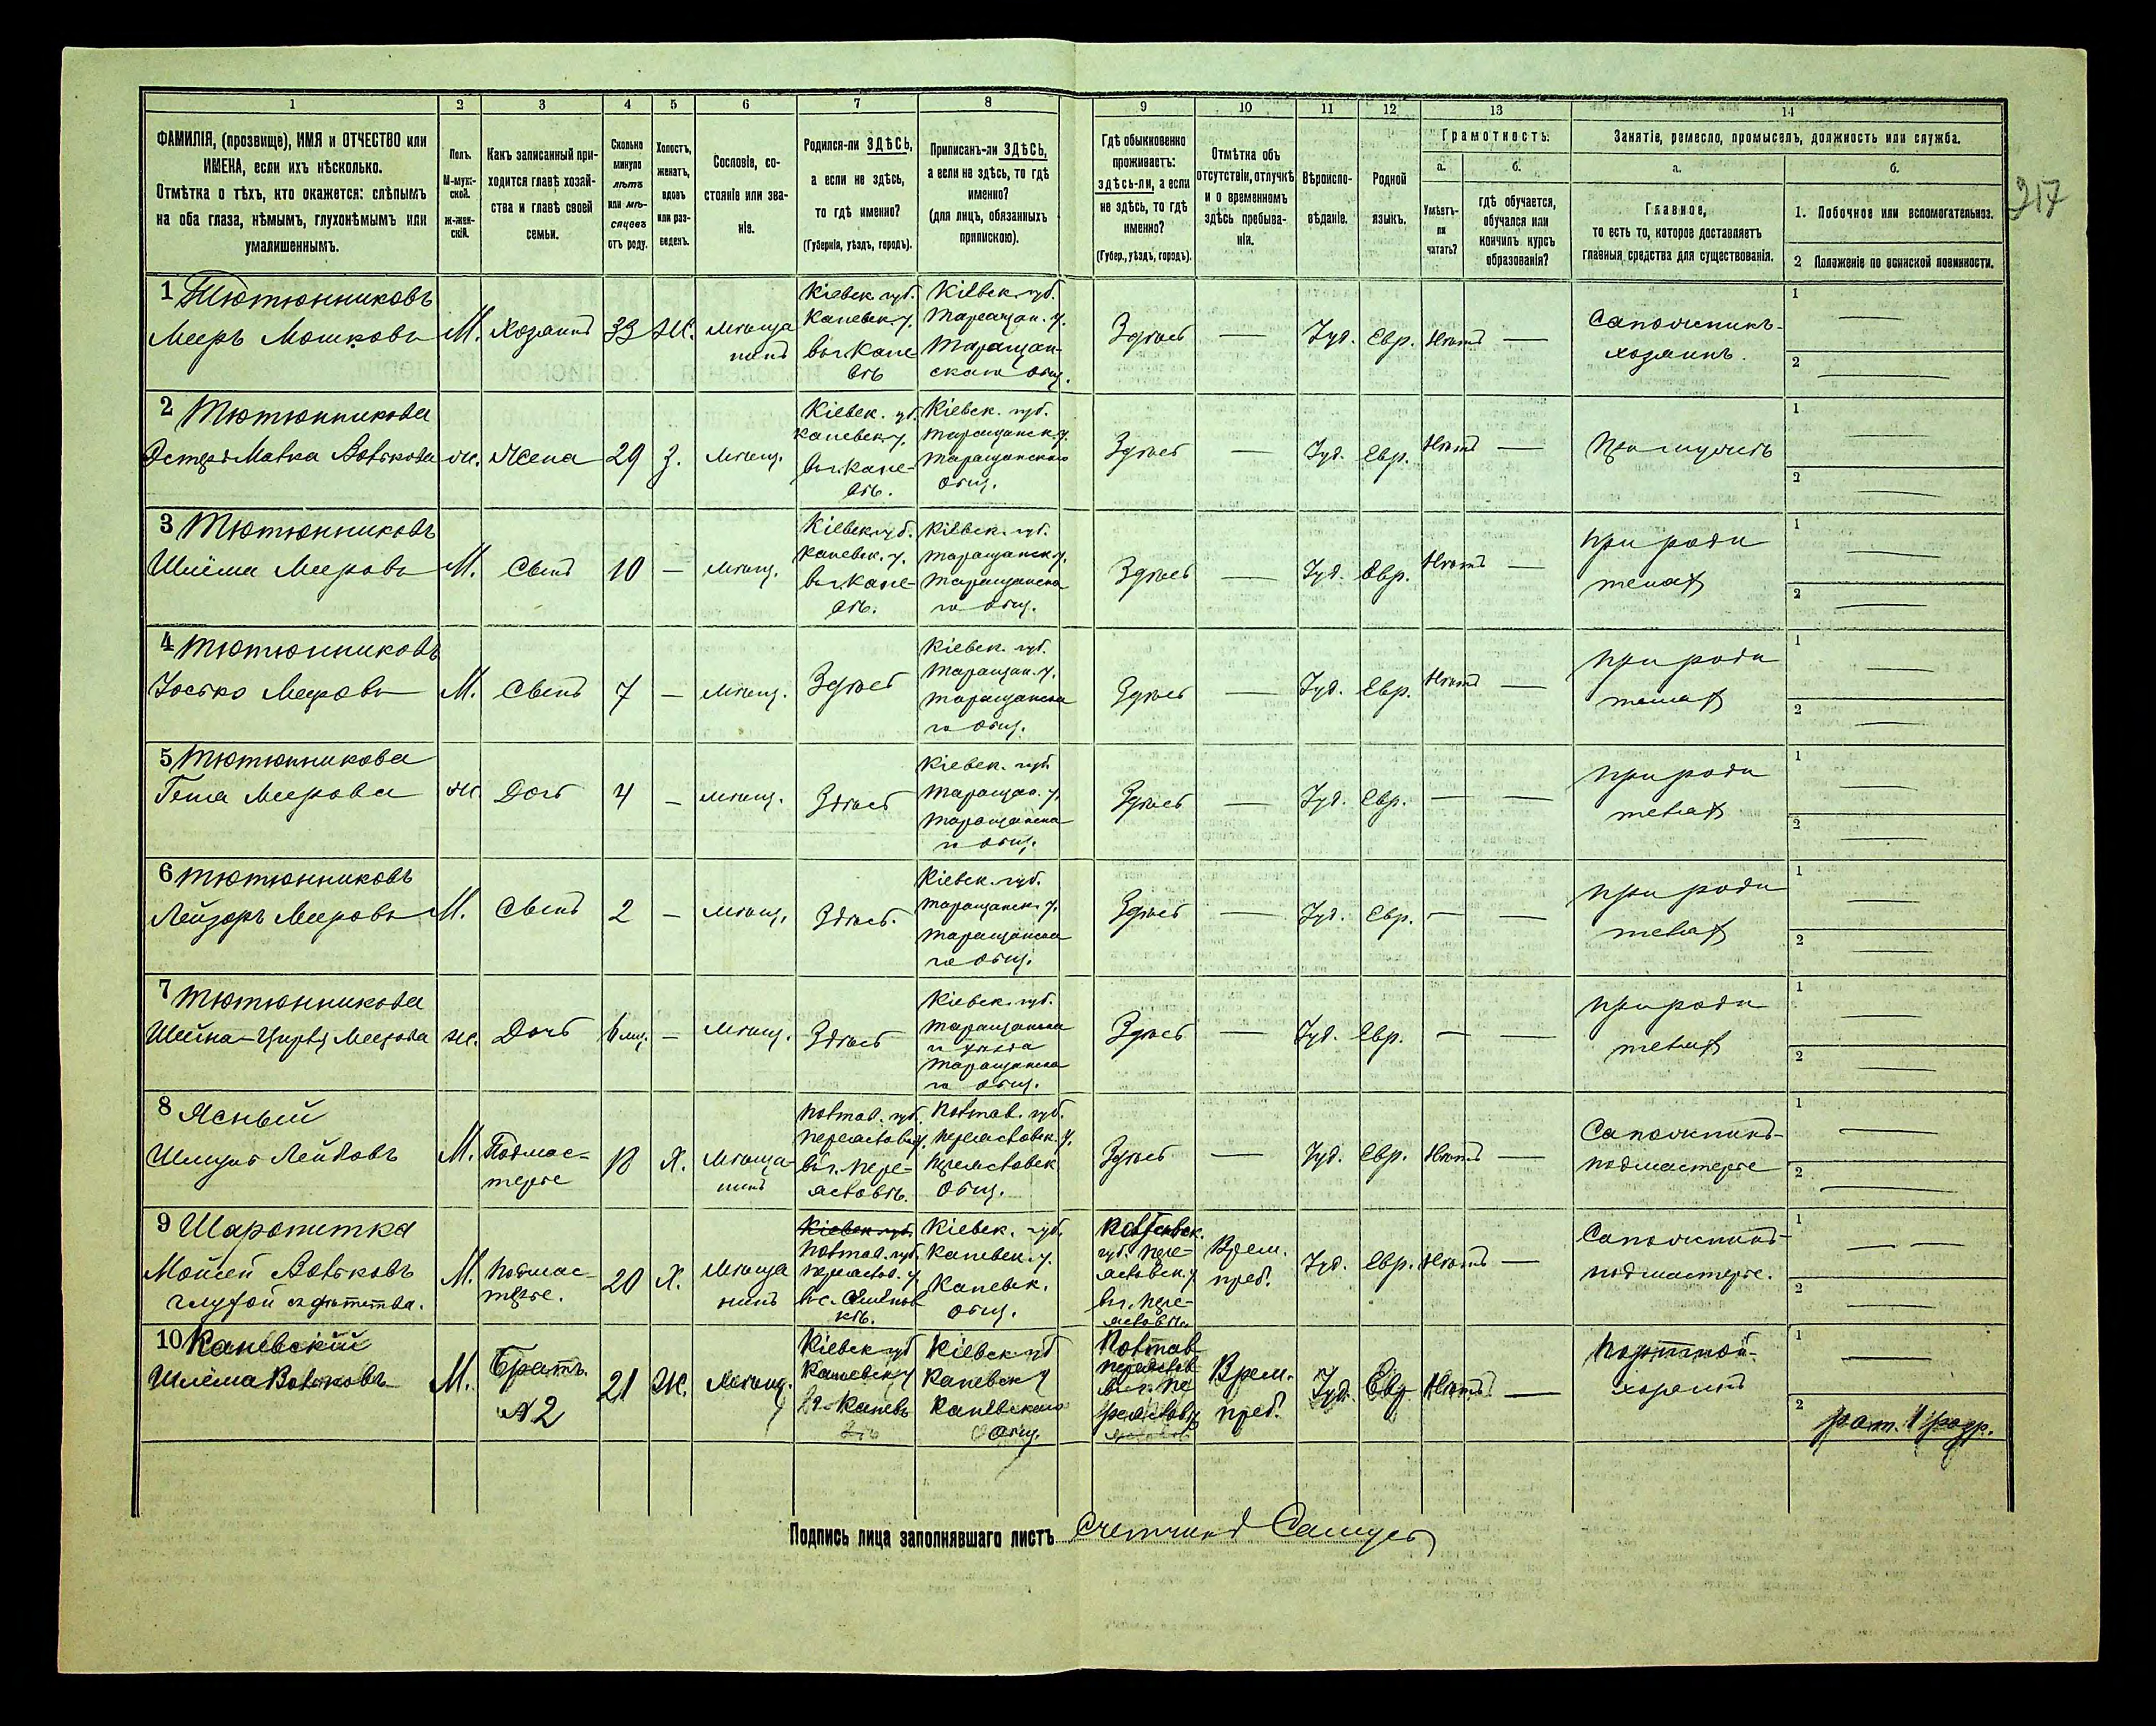 1 2 3 4 5 6 7 8 9 10 11 12 13 14
ФАМИЛІЯ, (прозвище), ИМЯ и ОТЧЕСТВО или
ИМЕНА, если ихъ нѣсколько.
Отмѣтка о тѣхъ, кто окажется: слѣпымъ
на оба глаза, нѣмымъ, глухонѣмымъ или
умалишеннымъ.
Полъ.
М-муж-
ской.
Ж-жен-
скій.
Какъ записанный при-
ходится главѣ хозяй-
ства и главѣ своей
семьи.
Сколько
минуло
лѣтъ
или мѣ-
сяцевъ
отъ роду.
Холостъ,
женатъ,
вдовъ
или раз-
веденъ.
Сословіе, со-
стояніе или зва-
ніе.
Родился-ли ЗДѢСЬ,
а если не здѣсь,
то гдѣ именно?
(Губернія, уѣздъ, городъ).
Приписанъ-ли ЗДѢСЬ,
а если не здѣсь, то гдѣ
именно?
(для лицъ, обязанныхъ
припискою).
Гдѣ обыкновенно
проживаетъ:
здѣсь-ли, а если
не здѣсь, то гдѣ
именно?
(Губер., уѣздъ, городъ).
Отмѣтка объ
отсутствіи, отлучкѣ
и о временномъ
здѣсь пребыва-
ніи.
Вѣроиспо-
вѣданіе.
Родной
языкъ.
Грамотность.
а. б.
Умѣетъ-
ли
читать?
гдѣ обучается,
обучался или
кончилъ курсъ
образованія?
Занятіе, ремесло, промыселъ, должность или служба.
а. б.
Главное,
то есть то, которое доставляетъ
главныя средства для существованія.
1. Побочное или вспомогательное.
2 Положеніе по воинской повинности.
217
1 Тютюнниковъ
Мееръ Мошковъ
М.
Хозяинъ
33
Ж.
мѣща
нинъ
Кіевск. губ.
Каневск. у.
въ г. Кане-
вѣ
Кіевск. губ.
Таращан. у.
Таращан-
скаго общ.
Здѣсь
—
Іуд.
Евр.
Нѣтъ
—
Сапожникъ-
хозяинъ.
1 —
2 —
2 Тютюнникова
Эстеръ Малка Волькова
ж.
Жена
29
З.
мѣщ.
Кіевск. губ.
Каневск. у.
въ г. Кане-
вѣ.
Кіевск. губ.
Таращанск. у.
Таращанскаго
общ.
Здѣсь
—
Іуд.
Евр.
Нѣтъ
—
При мужѣ
1 —
2 —
3 Тютюнниковъ
Шлёма Мееровъ
М.
Сынъ
10
—
мѣщ.
Кіевск. губ.
Каневск. у.
въ г. Кане-
вѣ.
Кіевск. губ.
Таращанск. у.
Таращанска
го общ.
Здѣсь
—
Іуд.
Евр.
Нѣтъ
—
При роди
теляхъ
1 —
2 —
4 Тютюнниковъ
Іосько Мееровъ
М.
Сынъ
7
—
мѣщ.
Здѣсь
Кіевск. губ.
Таращан. у.
Таращанска
го общ.
Здѣсь
—
Іуд.
Евр.
Нѣтъ
—
При роди
теляхъ
1 —
2 —
5 Тютюнникова
Геня Меерова
ж.
Дочь
4
—
мѣщ.
Здѣсь
Кіевск. губ.
Таращан. у.
Таращанска
го общ.
Здѣсь
—
Іуд.
Евр.
—
—
При роди
теляхъ
1 —
2 —
6 Тютюнниковъ
Лейзоръ Мееровъ
М.
Сынъ
2
—
мѣщ.
Здѣсь.
Кіевск. губ.
Таращанск. у.
Таращанска
го общ.
Здѣсь
—
Іуд.
Евр.
—
—
При роди
теляхъ
1 —
2 —
7 Тютюнникова
Шейна-Цирля Меерова
ж.
Дочь
6 мц.
—
мѣщ.
Здѣсь
Кіевск. губ.
Таращанска
го уѣзда
Таращанска
го общ.
Здѣсь
—
Іуд.
Евр.
—
—
При роди
теляхъ
1 —
2 —
8 Ясный
Шмуль Лейбовъ
М.
Подмас-
терье
18
Х.
мѣща-
нинъ
Полтав. губ.
Переяславск. у.
въ г. Пере-
яславлѣ.
Полтав. губ.
Переяславск. у.
Переяславск.
общ.
Здѣсь
—
Іуд.
Евр.
Нѣтъ
—
Сапожникъ-
подмастерье
1 —
2 —
9 Шаропитка
Мойсей Вольковъ
глухой съ дѣтства.
М.
Подмас-
терье.
20
Х.
мѣща
нинъ
Кіевск. губ.
Полтав. губ.
Переяслав. у.
въ с.
Кіевск. губ.
Каневск. у.
Каневск.
общ.
губ. Пере-
яславск. у
въ г. Пере-
яславлѣ
Врем.
преб.
Іуд.
Евр.
Нѣтъ
—
Сапожникъ-
подмастерье.
1 — —
2 —
10 Каневскій
Шлёма Вольковъ
М.
Братъ
№2
21
Ж.
мѣщ.
Кіевск губ
Каневск у
въ г. Канев
Кіевск губ
Каневск у
Каневскаго
общ.
Полтав
Переяслав
въ г. Пе
реяславл
Врем.
преб.
Іуд.
Евр
Нѣтъ
—
Портной-
хозяинъ
1 —
2 рат. 1 разр.
Подпись лица заполнявшаго листъ Счетчикъ